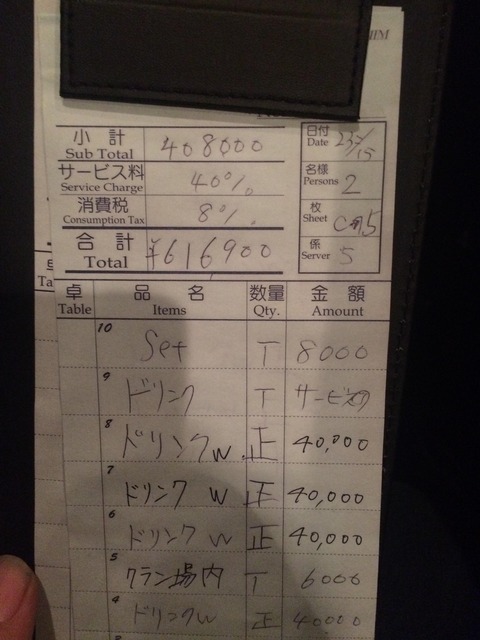 小計 Sub Total 408000
サービス料 Service Charge 40%
消費税 Consumption Tax 8%
合計 Total ¥616900
日付 Date
名様 Persons 2
枚 Sheet
係 Server 5
卓 Table 品名 Items 数量 Qty. 金額 Amount
10 Set T 8000
9 ドリンク T サービス
8 ドリンクW 正 40,000
7 ドリンク W 正 40,000
6 ドリンク W 正 40,000
5 クラン場内 T 6000
4 ドリンクW 正 40000